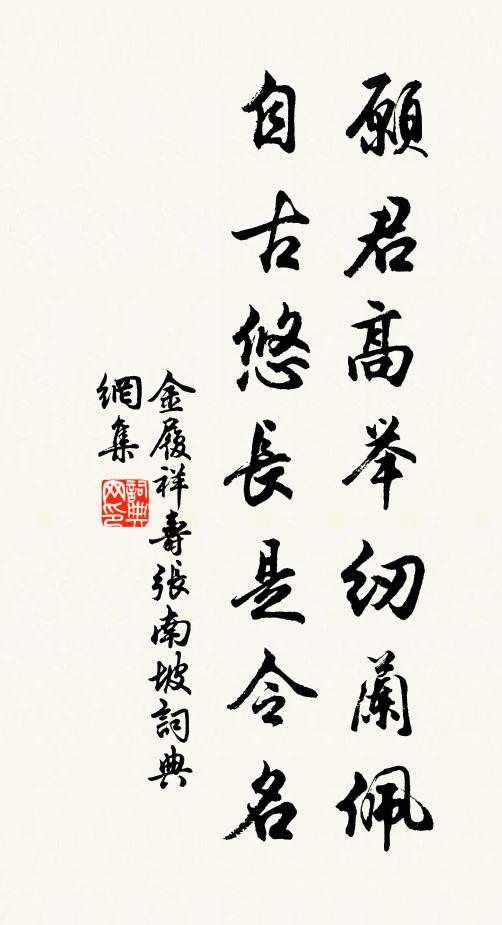 願君高举纫蘭佩
自古悠長是令名
金履祥壽張南坡詞典
網集
詞典
网印